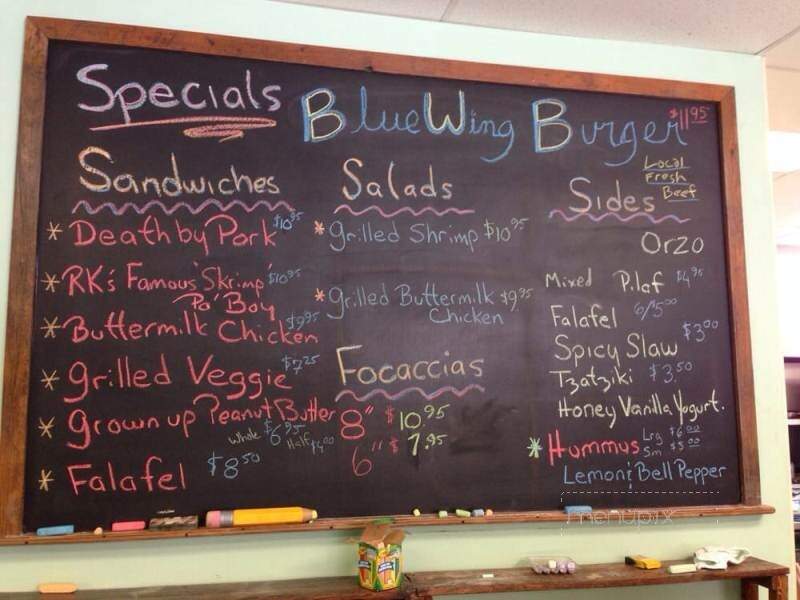 Specials
BlueWing Burger $11.95
Local
Fresh
Beef
Sandwiches
*Death by Pork $10.95
*RK's Famous 'Skrimp' $10.95
Po' Boy
*Buttermilk Chicken $9.95
*grilled Veggie $7.25
*grown up Peanut Butter
whole $6.95 Half $4.00
*Falafel $8.50
Salads
*grilled Shrimp $10.95
*grilled Buttermilk $9.95
Chicken
Focaccias
8" $10.95
6" $7.95
Sides
Orzo
Mixed Pilaf $4.95
Falafel 6/5.00
Spicy Slaw $3.00
Tzatziki $3.50
Honey Vanilla Yogurt.
*Hummus Lrg $6.00
Sm $3.00
Lemon & Bell Pepper
menupix